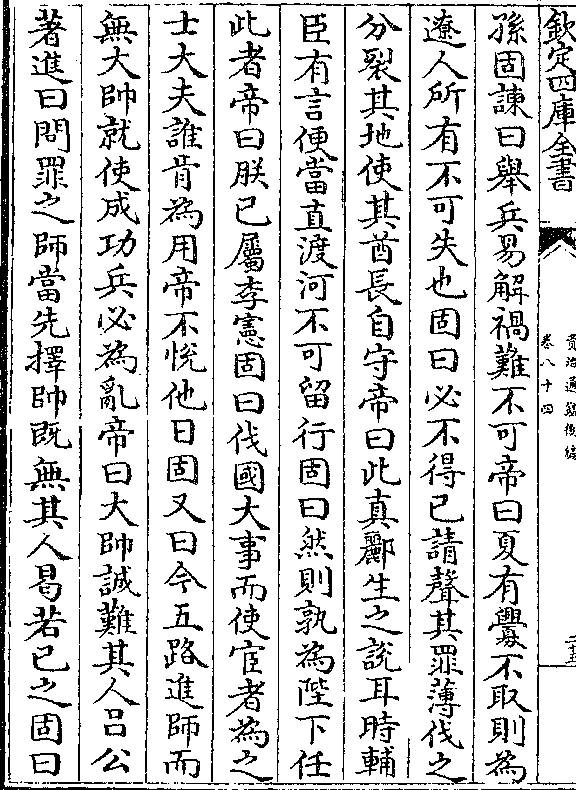 欽定四庫全書
資治通鑑後編
卷八十四
孫固諫曰舉兵易解禍難不可帝曰夏有釁不取則為
遼人所有不可失也固曰必不得已請聲其罪薄伐之
分裂其地使其酋長自守帝曰此真酈生之說耳時輔
臣有言便當直渡河不可留行固曰然則孰為陛下任
此者帝曰朕已屬李憲固曰伐國大事而使宦者為之
士大夫誰肯為用帝不悅他日固又曰今五路進師而
無大帥就使成功兵必為亂帝曰大帥誠難其人呂公
著進曰問罪之師當先擇帥既無其人曷若已之固曰